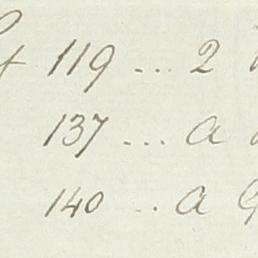 119 ... 2
137 ... a
140 .. a G